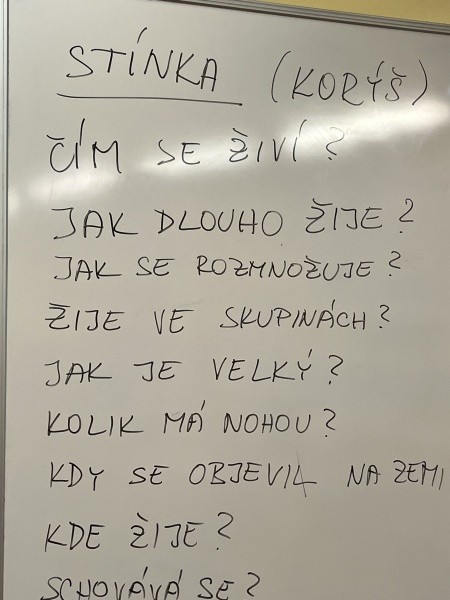 STÍNKA (KORÝŠ)
ČÍM SE ŽIVÍ?
JAK DLOUHO ŽIJE?
JAK SE ROZMNOŽUJE?
ŽIJE VE SKUPINÁCH?
JAK JE VELKÝ?
KOLIK MÁ NOHOU?
KDY SE OBJEVIL NA ZEMI
KDE ŽIJE?
SCHOVÁVÁ SE?